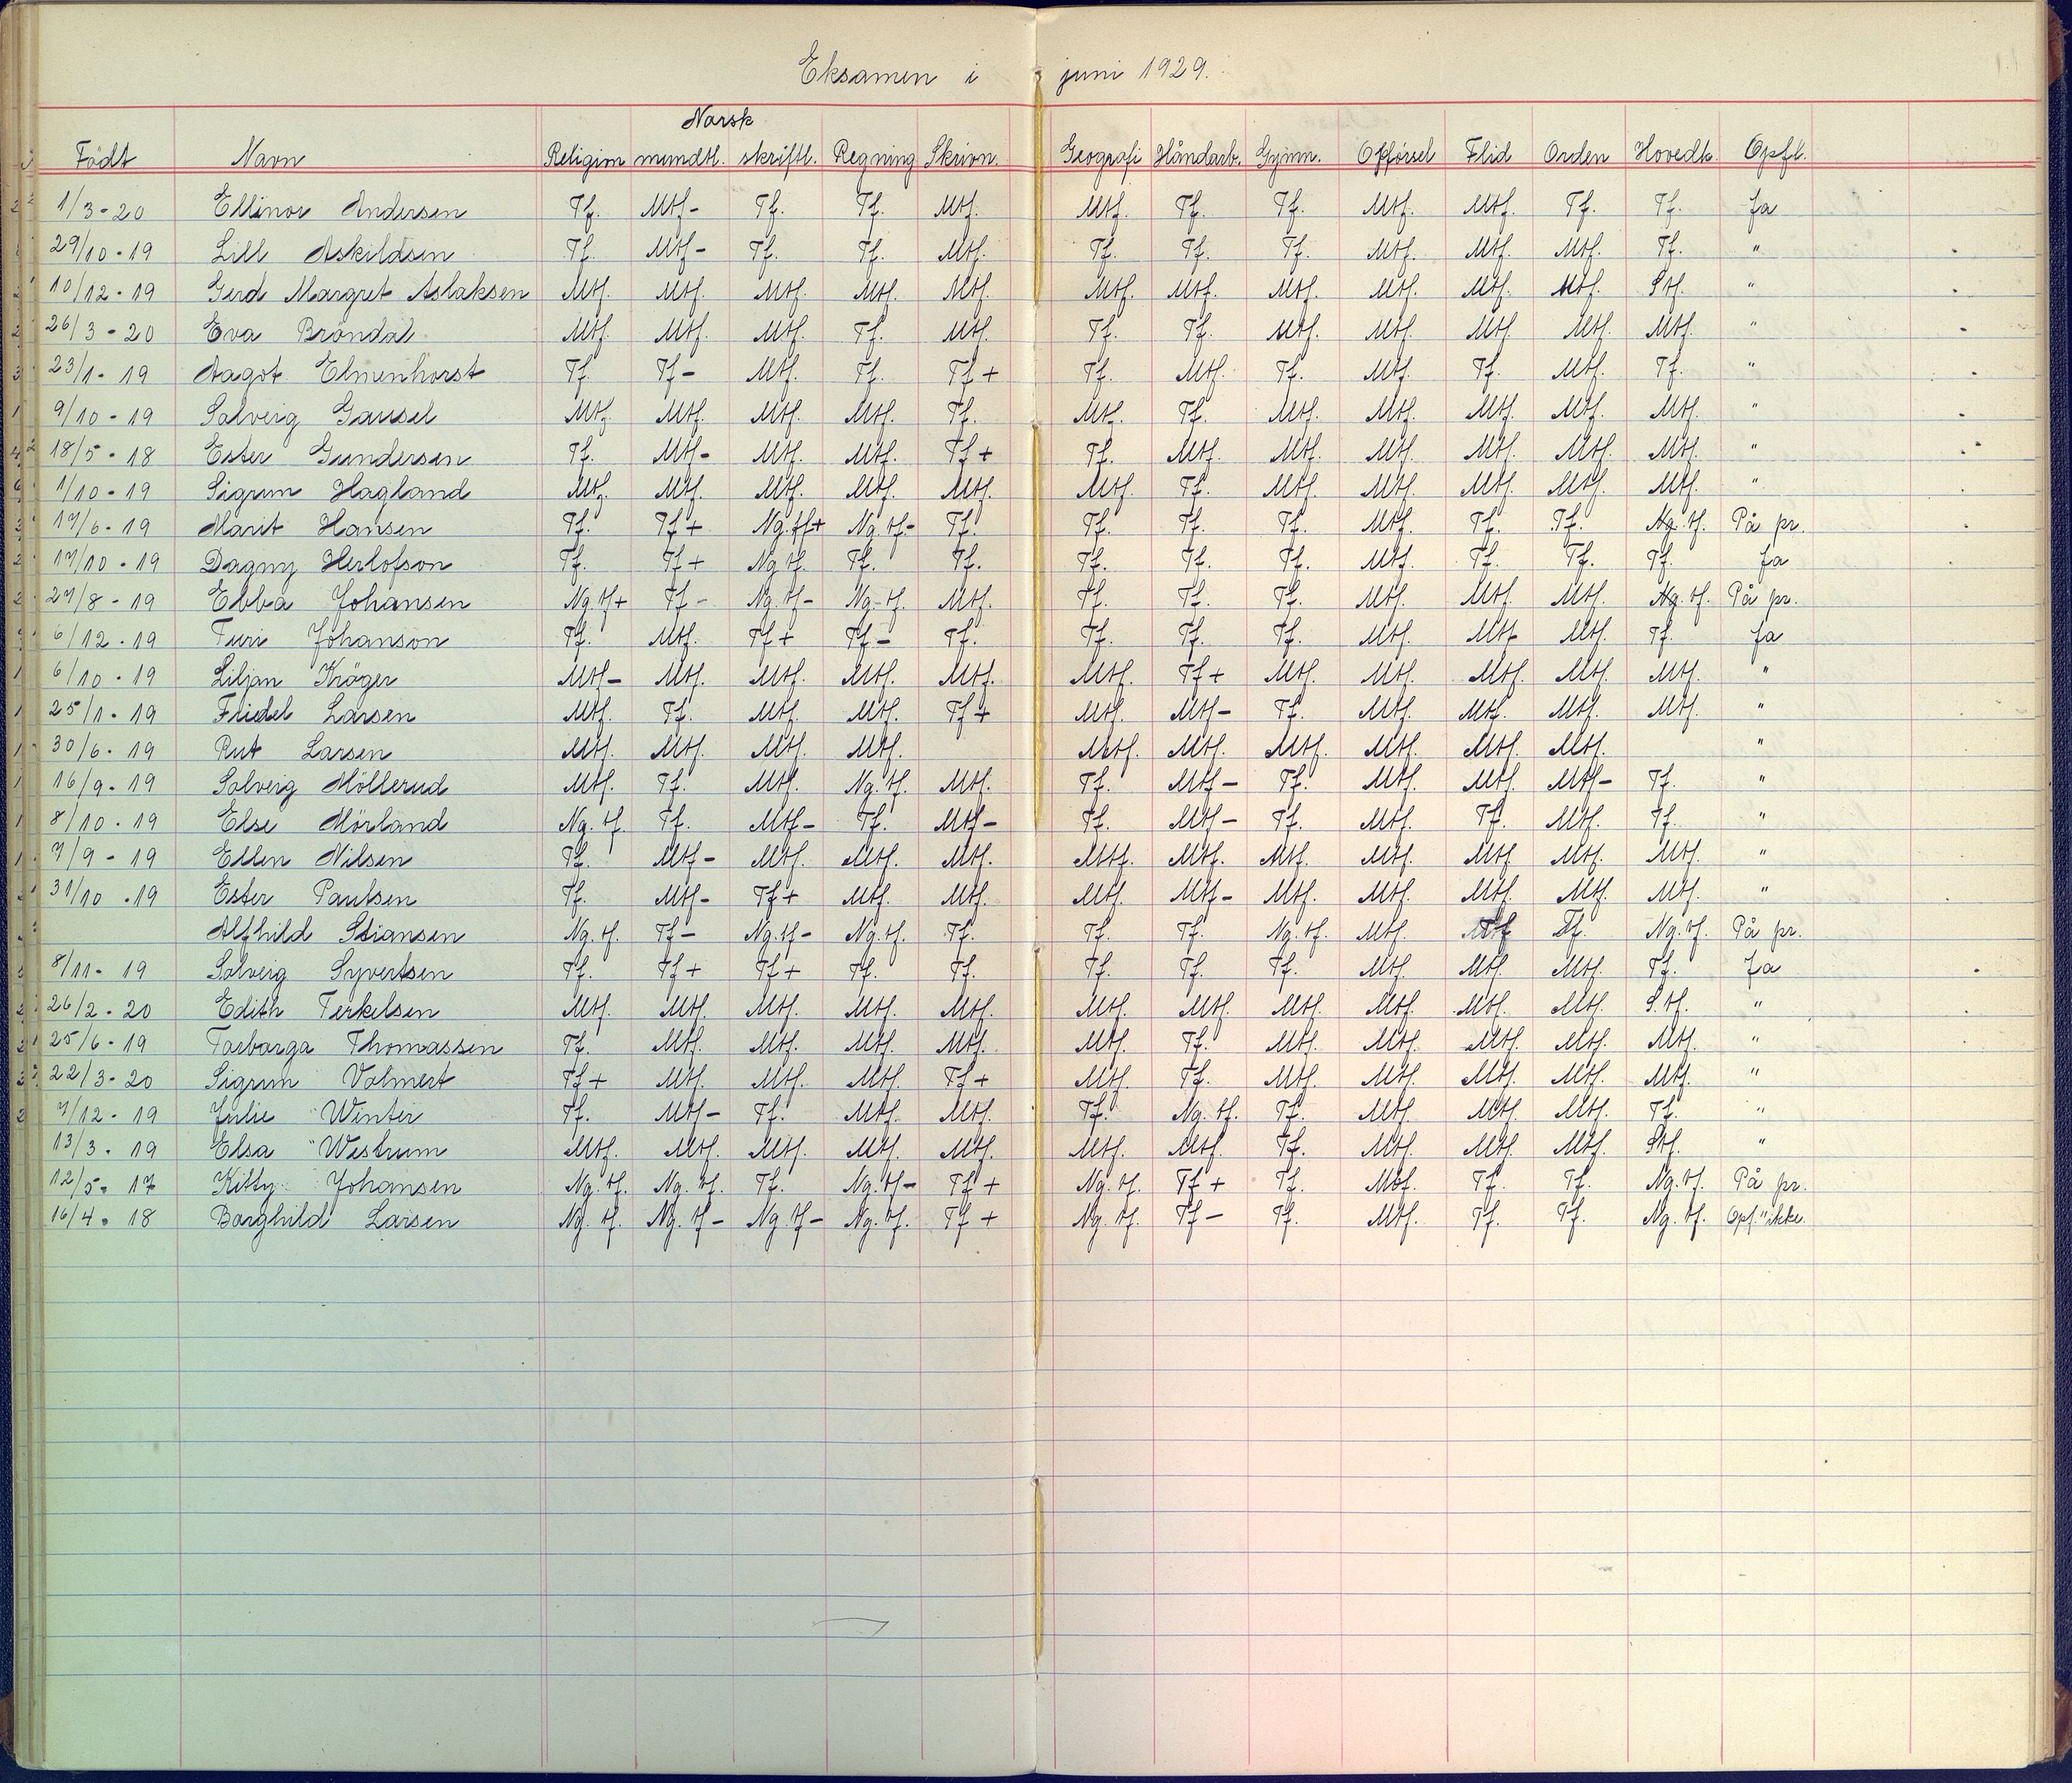 Eksamen i juni 1929.
Norsk
Födt Navn Religion mundtl. skriftl. Regning Skrivn. Geografi Håndarb. Gymn. Opförsel Flid Orden Hovedk. Opfl.
1/3-20 Ellinor Andersen Tf. Mtf- Tf. Tf. Mtf. Mtf. Tf. Tf. Mtf. Mtf. Tf. Tf. Ja
29/10-19 Lill Askildsen Tf. Mtf- Tf. Tf. Mtf. Tf. Tf. Tf. Mtf. Mtf. Mtf. Tf. "
10/12-19 Gerd Margret Aslaksen Mtf. Mtf. Mtf. Mtf. Mtf. Mtf. Mtf. Mtf. Mtf. Mtf. Mtf. Stf. "
26/3-20 Eva Bröndal Mtf. Mtf. Mtf. Tf. Mtf. Tf. Tf. Mtf. Mtf. Mtf. Mtf. Mtf. "
23/1-19 Aagot Elmenhorst Tf. Tf- Mtf. Tf. Tf+ Tf. Mtf. Tf. Mtf. Tf. Mtf. Tf. "
9/10-19 Solveig Gausel Mtf. Mtf. Mtf. Mtf. Tf. Mtf. Tf. Mtf. Mtf. Mtf. Mtf. Mtf. "
18/5-18 Ester Gundersen Tf. Mtf- Mtf. Mtf. Tf+ Tf. Mtf. Mtf. Mtf. Mtf. Mtf. Mtf. "
1/10-19 Sigrun Hagland Mtf. Mtf. Mtf. Mtf. Mtf. Mtf. Tf. Mtf. Mtf. Mtf. Mtf. Mtf. "
17/6-19 Marit Hansen Tf. Tf+ Ng.tf+ Ng.tf- Tf. Tf. Tf. Tf. Mtf. Tf. Tf. Ng.tf. På pr.
17/10-19 Dagny Herlofson Tf. Tf+ Ng tf. Tf. Tf. Tf. Tf. Tf. Mtf. Tf. Tf. Tf. Ja
27/8-19 Ebba Johansen Ng tf+ Tf- Ng.tf- Ng.tf. Mtf. Tf. Tf. Tf. Mtf. Mtf. Mtf. Ng.tf. På pr.
6/12-19 Turi Johanson Tf. Mtf. Tf+ Tf- Tf. Tf. Tf. Tf. Mtf. Mtf Mtf. Tf. Ja
6/10-19 Liljan Kröger Mtf- Mtf. Mtf. Mtf. Mtf. Mtf. Tf+ Mtf. Mtf. Mtf. Mtf. Mtf. "
25/1-19 Friedel Larsen Mtf. Tf. Mtf. Mtf. Tf+ Mtf. Mtf- Tf. Mtf. Mtf. Mtf. Mtf. "
30/6-19 Rut Larsen Mtf. Mtf. Mtf. Mtf. Mtf. Mtf. Mtf. Mtf. Mtf. Mtf. "
16/9-19 Solveig Möllerud Mtf. Tf. Mtf. Ng.tf. Mtf. Tf. Mtf- Tf. Mtf. Mtf. Mtf- Tf. "
8/10-19 Else Mörland Ng.tf. Tf. Mtf- Tf. Mtf- Tf. Mtf- Tf. Mtf. Tf. Mtf. Tf. "
7/9-19 Ellen Nilsen Tf. Mtf- Mtf. Mtf. Mtf. Mtf. Mtf. Mtf. Mtf. Mtf Mtf. Mtf. "
31/10-19 Ester Paulsen Tf. Mtf- Tf+ Mtf. Mtf. Mtf. Mtf- Mtf. Mtf. Mtf. Mtf. Mtf. "
Alfhild Stiansen Ng.tf. Tf- Ng.tf- Ng.tf. Tf. Tf. Tf. Ng.tf. Mtf. Tf. Ng.tf. På pr.
8/11-19 Solveig Syvertsen Tf. Tf+ Tf+ Tf. Tf. Tf. Tf. Tf. Mtf. Mtf. Mtf. Tf. Ja
26/2-20 Edith Terkelsen Mtf. Mtf. Mtf. Mtf. Mtf. Mtf. Mtf. Mtf. Mtf. Mtf. Mtf. Stf. "
25/6-19 Torborga Thomassen Tf. Mtf. Mtf. Mtf. Mtf. Mtf. Tf. Mtf. Mtf. Mtf. Mtf. Mtf. "
22/3-20 Sigrun Volmert Tf+ Mtf. Mtf. Mtf. Tf+ Mtf. Tf. Mtf. Mtf. Mtf. Mtf. Mtf. "
7/12-19 Julie Winter Tf. Mtf- Tf. Mtf. Mtf. Tf. Ng.tf. Tf. Mtf. Mtf. Mtf. Tf. "
13/3-19 Elsa Westrum Mtf. Mtf. Mtf. Mtf. Mtf. Mtf. Mtf. Tf. Mtf. Mtf. Mtf. Stf. "
12/5-17 Kitty Johansen Ng.tf. Ng.tf. Tf. Ng.tf- Tf+ Ng.tf. Tf+ Tf. Mtf. Tf. Tf. Ng.tf. På pr.
16/4-18 Borghild Larsen Ng.tf. Ng.tf- Ng.tf- Ng.tf. Tf+ Ng.tf. Tf- Tf. Mtf. Tf. Tf. Ng.tf. Opf. ikke.